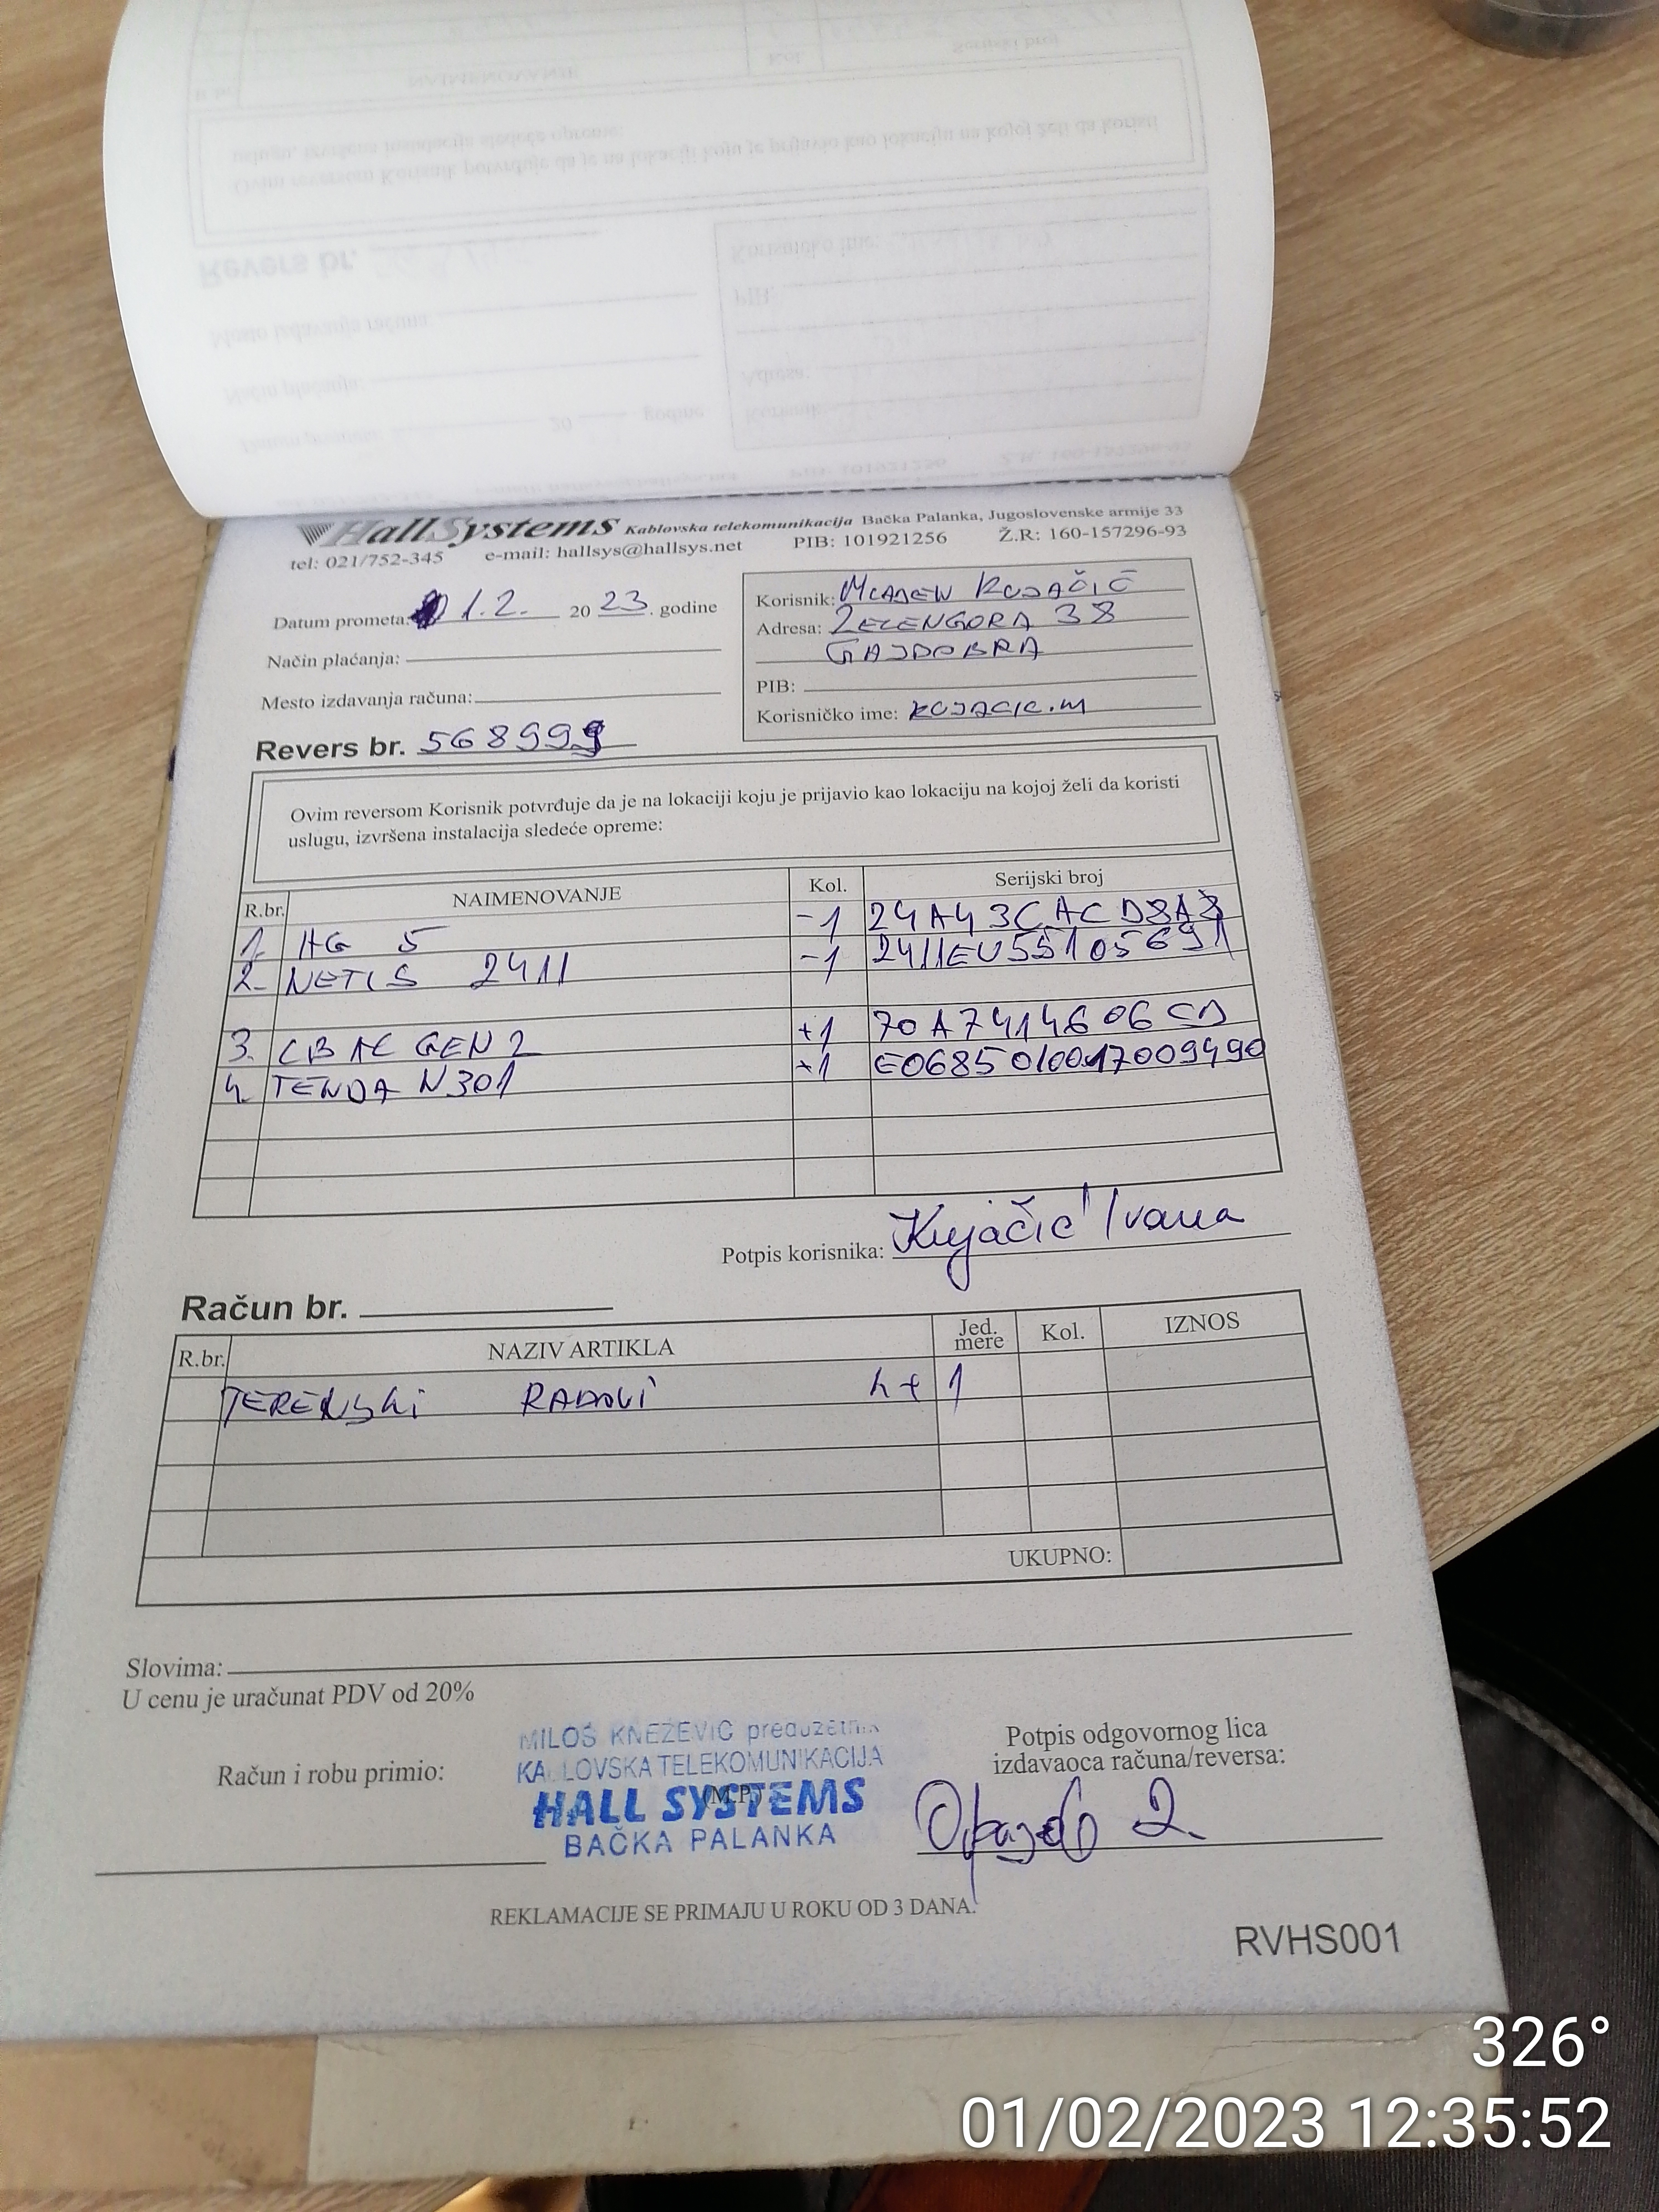 HallSystems Kablovska telekomunikacija Bačka Palanka, Jugoslovenske armije 33
tel: 021/752-345 e-mail: hallsys@hallsys.net PIB: 101921256 Ž.R: 160-157296-93
Datum prometa: 1.2. 20 23. godine
Način plaćanja:
Mesto izdavanja računa:
Revers br. 568999
Korisnik: MLADEN KUJAČIĆ
Adresa: ZELENGORA 38
GAJDOBRA
PIB:
Korisničko ime: KUJACIC.M
Ovim reversom Korisnik potvrđuje da je na lokaciji koju je prijavio kao lokaciju na kojoj želi da koristi
uslugu, izvršena instalacija sledeće opreme:
R.br. NAIMENOVANJE Kol. Serijski broj
1. HG 5 -1 24A43CACD8A8
2. NETIS 2411 -1 2411EU55105691
3. LB AC GEN 2 +1 70A7414606CD
4. TENDA N301 +1 E0685010017009490
Potpis korisnika: Kujačić Ivana
Račun br.
R.br. NAZIV ARTIKLA Jed. mere Kol. IZNOS
TERENSKI RADOVI h+ 1
UKUPNO:
Slovima:
U cenu je uračunat PDV od 20%
Račun i robu primio:
MILOŠ KNEŽEVIĆ preduzetnik
KABLOVSKA TELEKOMUNIKACIJA
(M.P.)
HALL SYSTEMS
BAČKA PALANKA
Potpis odgovornog lica
izdavaoca računa/reversa:
REKLAMACIJE SE PRIMAJU U ROKU OD 3 DANA.
RVHS001
326°
01/02/2023 12:35:52